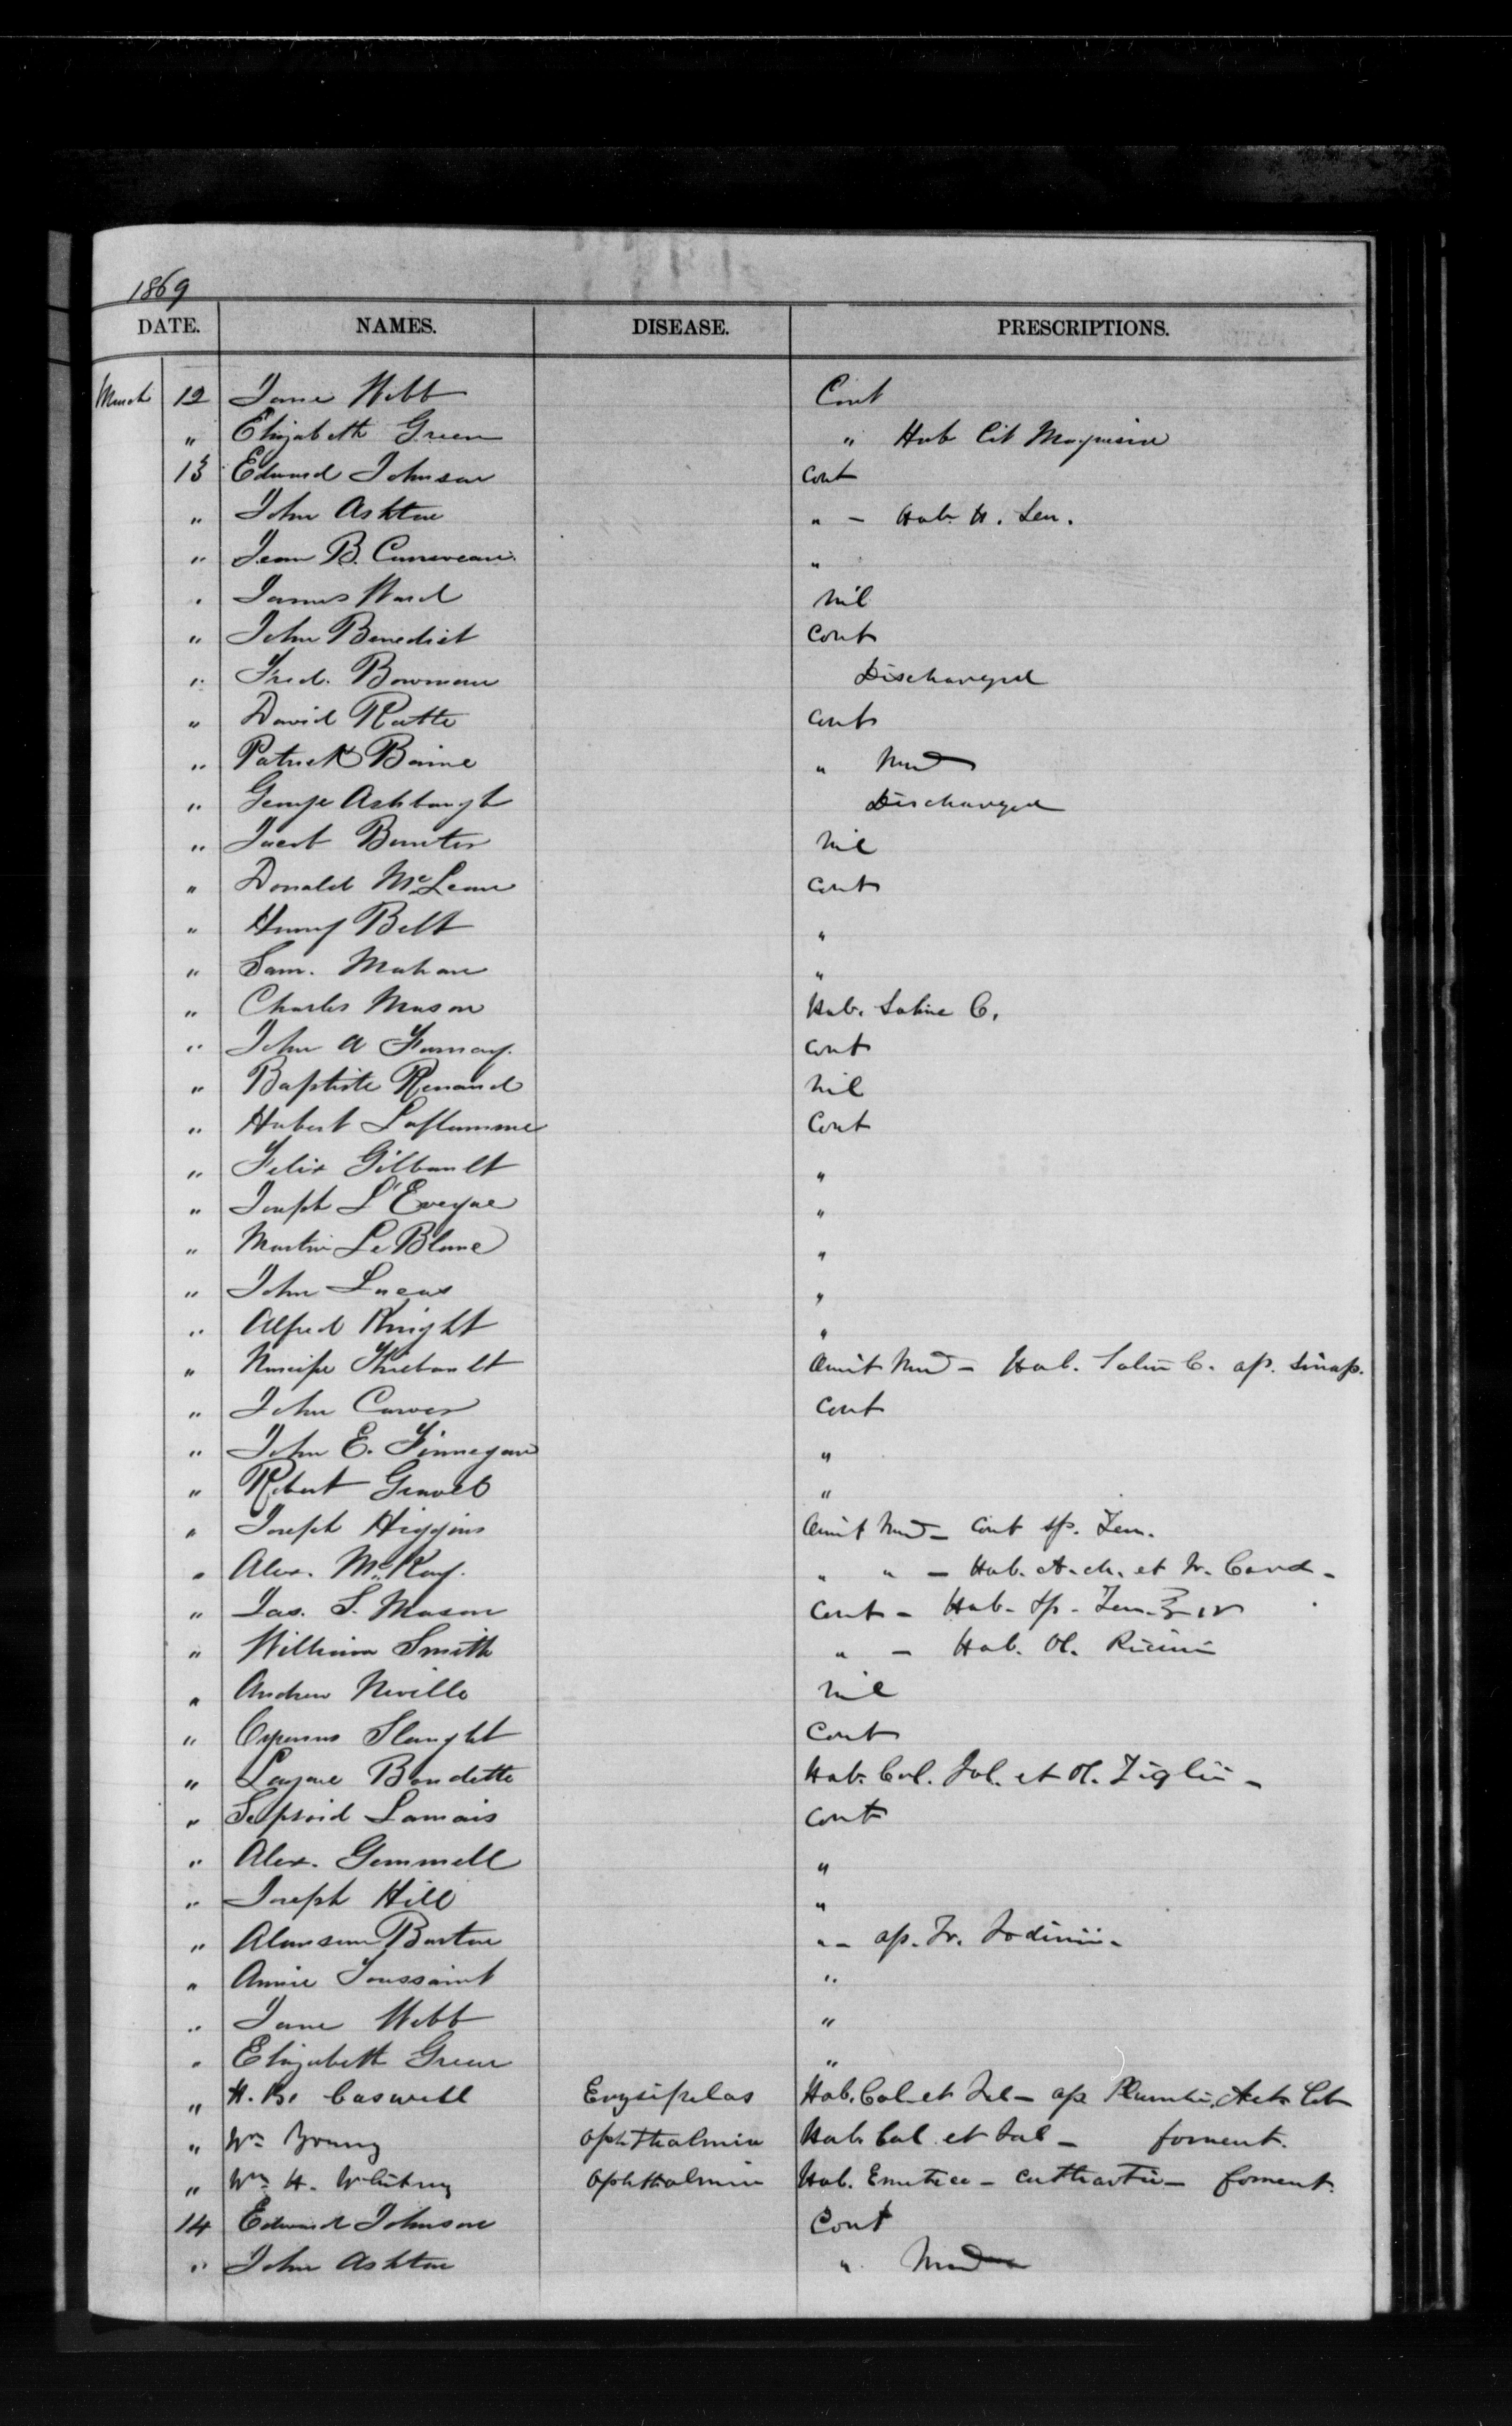 1869
DATE. NAMES. DISEASE. PRESCRIPTIONS.
March 12 Jane Webb Cont
" Elizabeth Green " Hab Cit Magnesia
13 Edward Johnson cont
" John Ashton " - Hab. H. Sen.
" Jean B. "
" James Ward nil
" John Benedict cont
" Fred. Bowman Discharged
" David Ratte cont
" Patrick Baine " Med
" George Ashbaugh Discharged
" Jacob Bunter nil
" Donald McLean cont
" Henry Belt "
" Sam. Mahan "
" Charles Mason Hab. Saline C.
" John A Furnay. cont
" Baptiste Renaud nil
" Hubert Laflamme Cont
" Felix Gilbault "
" Joseph L'Eveque "
" Martin Le Blanc "
" John Lucas "
" Alfred Knight "
" Narcisse Thiebault Omit Med - Hab. Salin C. ap. Sinap.
" John Carver cont
" John E. Finnegan "
" Robert Gravel "
" Joseph Higgins Omit Med - Cont sp.
" Alex. McKay. " " - Hab. et Tr. Card -
" Jas. S. Mason Cont - Hab. Sp. ʒ iv
" William Smith " - Hab. Ol. Ricini
" Andrew Neville nil
" Cyrenus Slaught Cont
" Lazare Boudette Hab. Cal. Jal. et Ol. Tiglii -
" Lamais cont
" Alex. Gemmell "
" Joseph Hill "
" Alanson Barton " - ap. Tr. Iodinii -
" Annie Toussaint "
" Jane Webb "
" Elizabeth Green "
" H. B. Caswell Erysipelas Hab. Cal. et Jal - ap Plumbi. Acet
" Wm Young Ophthalmia Hab Cal et Jal - foment.
" Wm H. Whitney Ophthalmia Hab. Emetica - cathartic - foment.
14 Edward Johnson Cont
" John Ashton " Med